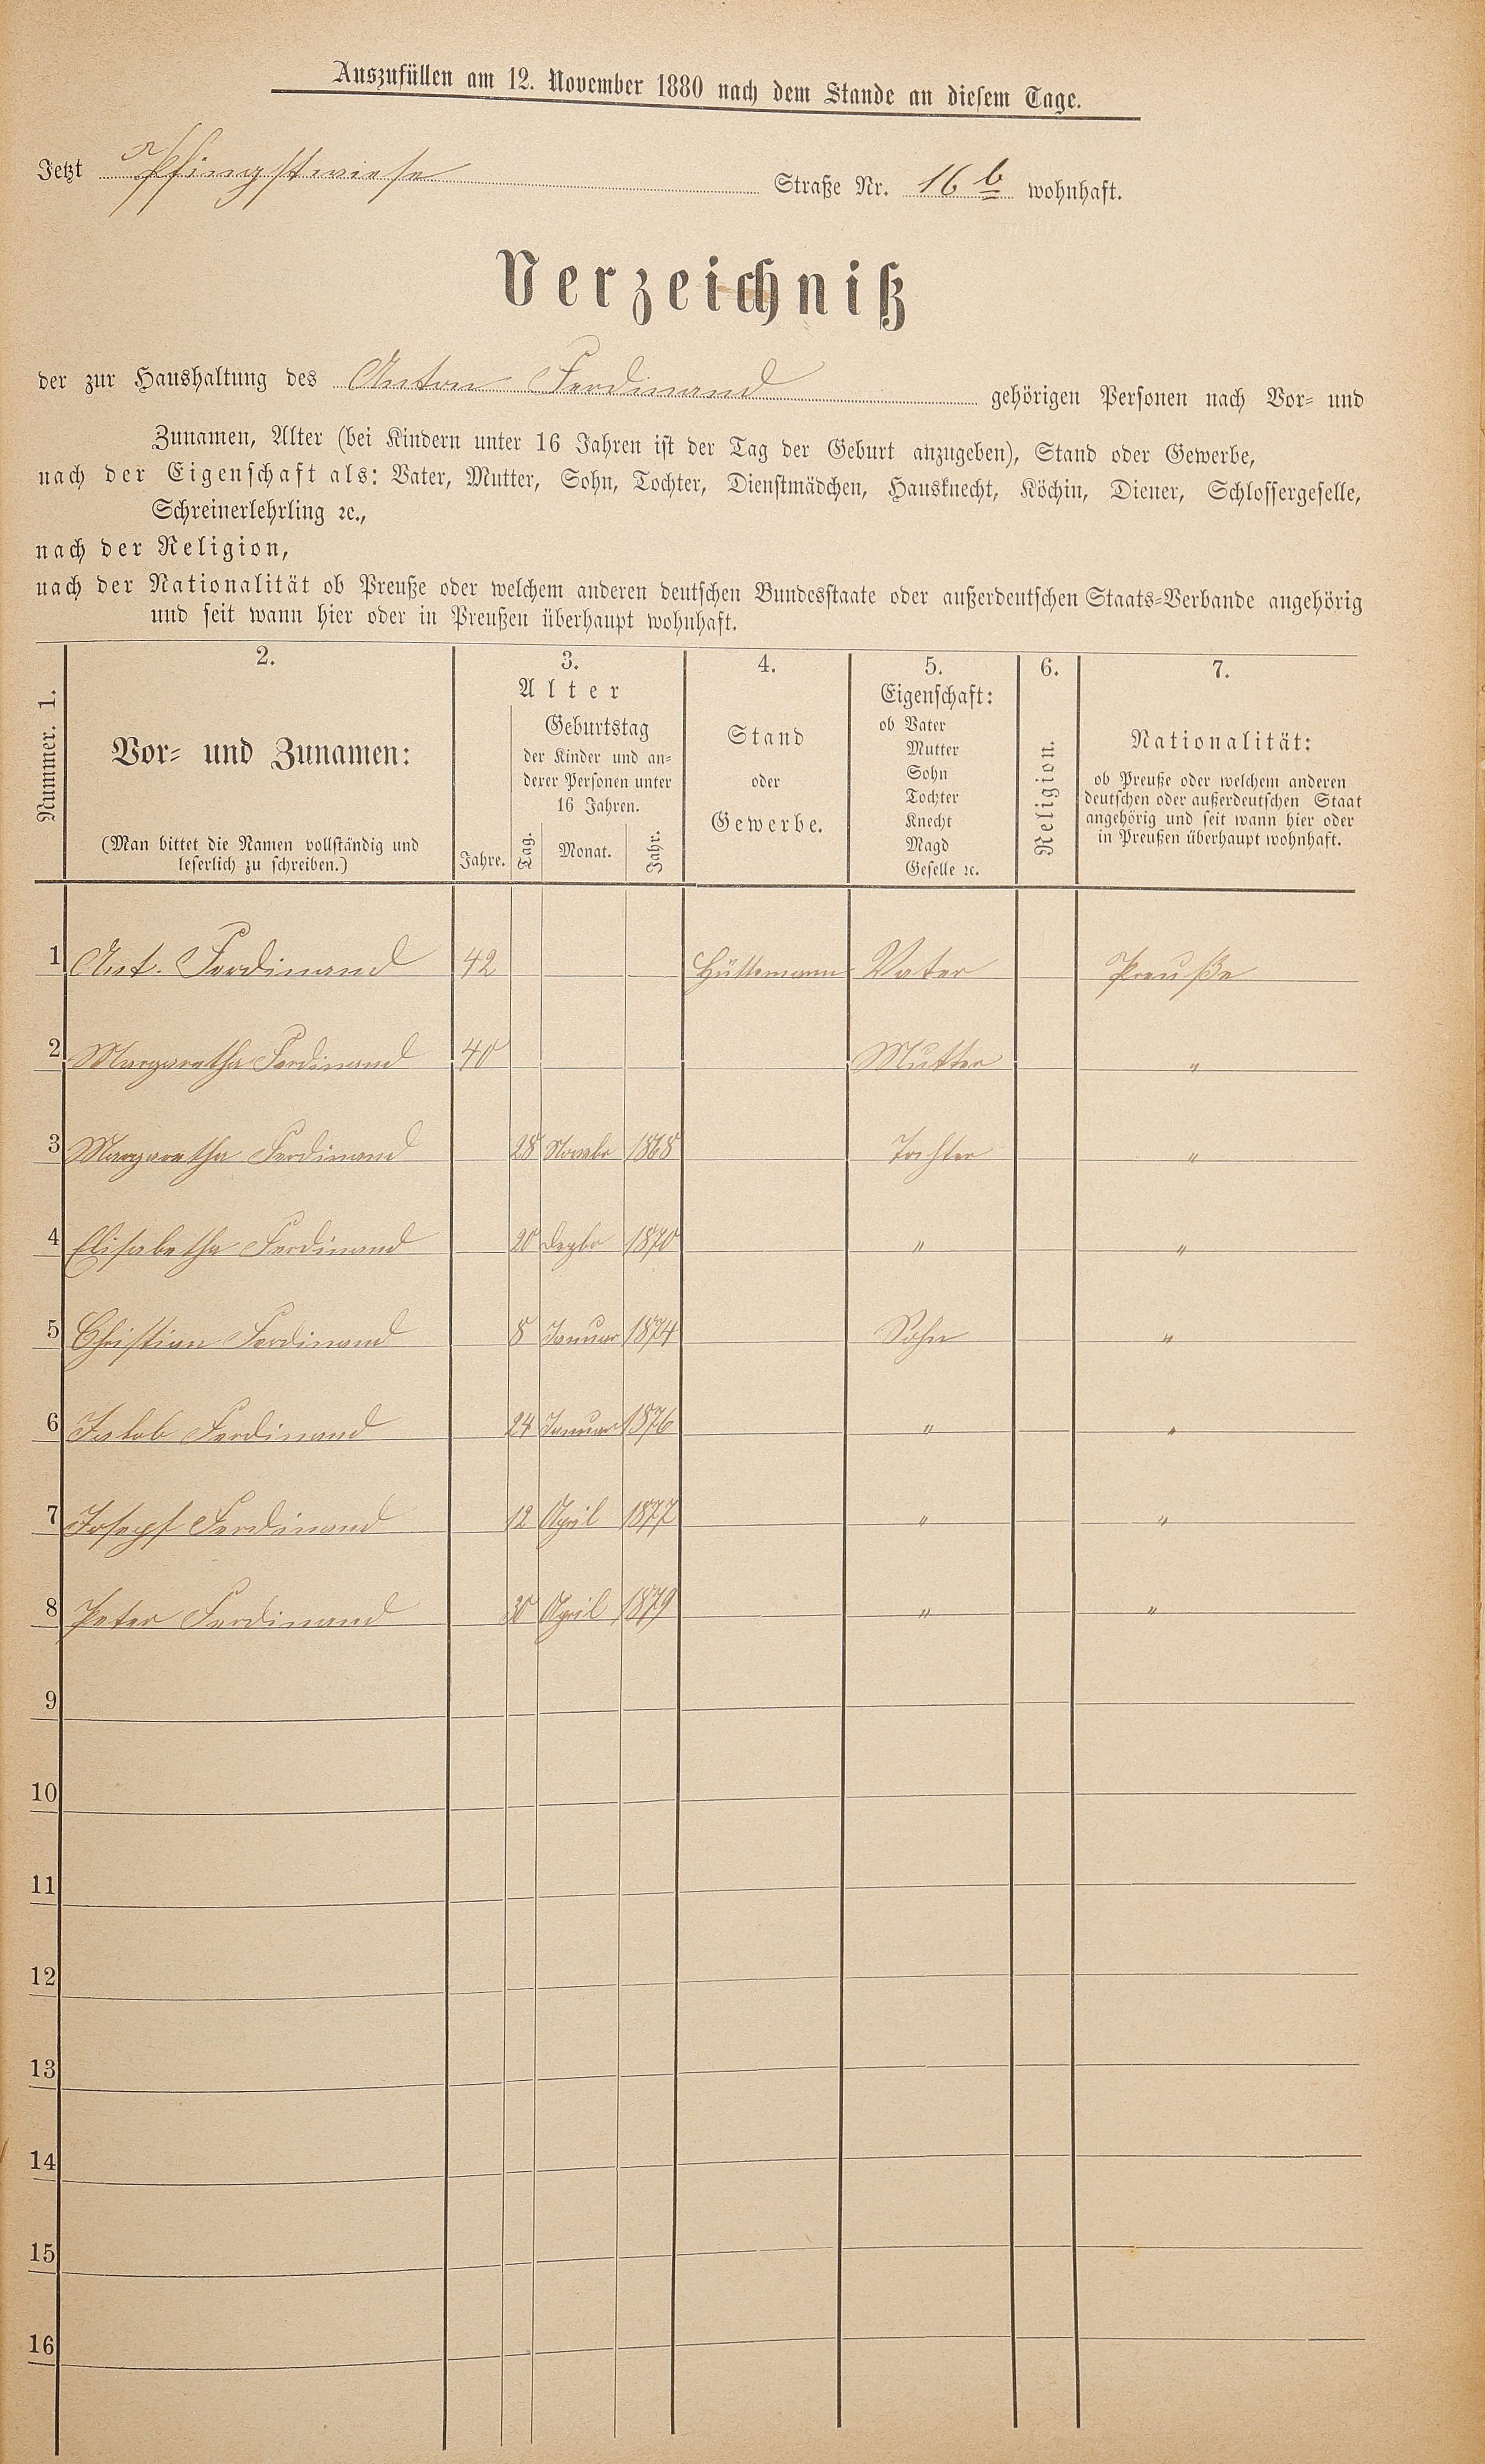 Auszufüllen am 12. November 1880 nach dem Stande an diesem Tage.
Jetzt Pfingstwiese Straße Nr. 16 b wohnhaft.
Verzeichniß
der zur Haushaltung des Anton Ferdinand gehörigen Personen nach Vor- und
Zunamen, Alter (bei Kindern unter 16 Jahren ist der Tag der Geburt anzugeben), Stand oder Gewerbe,
nach der Eigenschaft als: Vater, Mutter, Sohn, Tochter, Dienstmädchen, Hausknecht, Köchin, Diener, Schlossergeselle,
Schreinerlehrling ꝛc.,
nach der Religion,
nach der Nationalität ob Preuße oder welchem anderen deutschen Bundesstaate oder außerdeutschen Staats-Verbande angehörig
und seit wann hier oder in Preußen überhaupt wohnhaft.
Nummer. 1.
2.
Vor- und Zunamen:
(Man bittet die Namen vollständig und
leserlich zu schreiben.)
3.
Alter
Jahre.
Geburtstag
der Kinder und an-
derer Personen unter
16 Jahren.
Tag. Monat. Jahr.
4.
Stand
oder
Gewerbe.
5.
Eigenschaft:
ob Vater
Mutter
Sohn
Tochter
Knecht
Magd
Geselle ꝛc.
6.
Religion.
7.
Nationalität:
ob Preuße oder welchem anderen
deutschen oder außerdeutschen Staat
angehörig und seit wann hier oder
in Preußen überhaupt wohnhaft.
1 Ant. Ferdinand 42 Hüttemann Vater Preuße
2 Margaretha Ferdinand 40 Mutter "
3 Margaretha Ferdinand 28 Novebr 1868 Tochter "
4 Elisabetha Ferdinand 20 Dezbr 1870 " "
5 Christian Ferdinand 8 Januar 1874 Sohn "
6 Jakob Ferdinand 24 Januar 1876 " "
7 Joseph Ferdinand 12 April 1877 " "
8 Peter Ferdinand 30 April 1879 " "
9
10
11
12
13
14
15
16